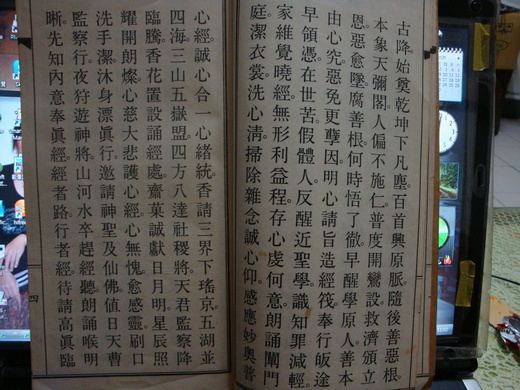 古降。始奠乾坤下凡塵。百首興原脈。隨後善惡根。
本象天彌閣。人偏不施仁。普度開鸞設。救濟頒立
恩。惡愈墜腐善根。何時悟了徹。早醒學原人。善本
由心究。惡免更孽因。明心請旨造經筏。奉行皈途
早領憑。在世苦。假體人。反醒近聖學。識知罪減輕。
家維覺曉經。無形利益程。存心處何意。朗誦闡門
庭。潔衣裳。洗心清。掃除雜念誠心仰。感應妙奧普
心經。誠心合一心緒統。香請三界下瑤京。五湖並
四海。三山五嶽盟。四方八達社稷將。天君監察降
臨騰。香花置設誦經處。齋菓誠獻日月明。星辰照
耀開朗燦。心慈大悲護心經。心無愧。愈感靈。刷口
洗手潔。沐身漂眞行。邀請神聖及仙佛。值日天曹
監察行。夜狩遊神將。山河水卒趕經聽。朗誦喉明
晰。先知內意奉眞經。經者路。行者經。待請高眞臨
四